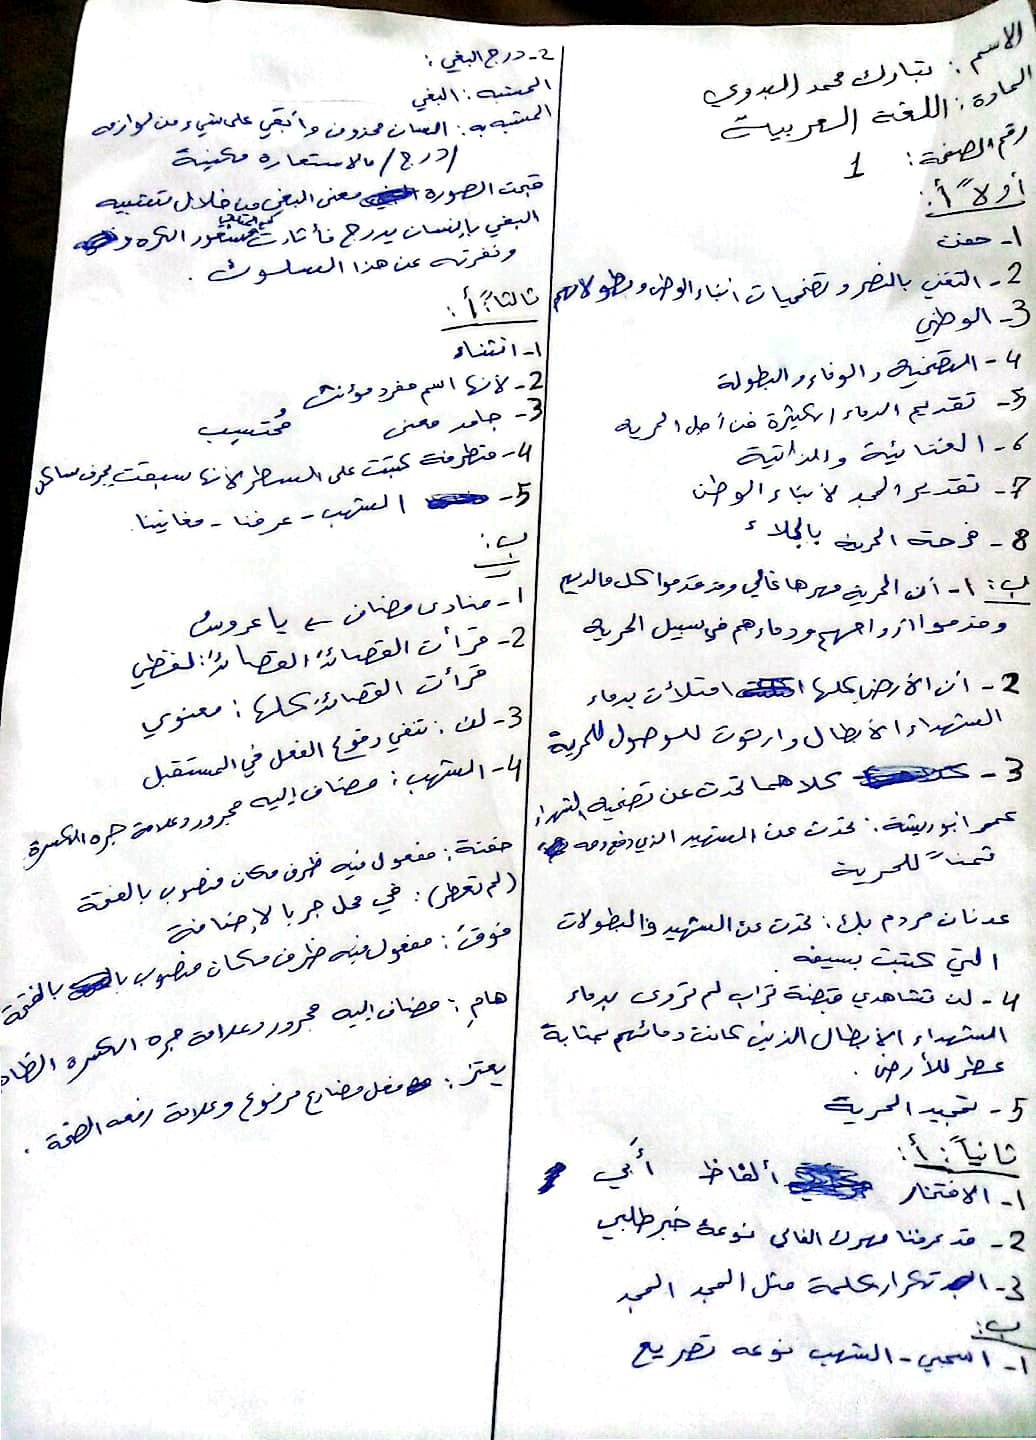 الاسم: تبارك محمد البدوي
المادة: اللغة العربية
رقم الصفحة: 1
أولاً: أ:
1- حفن
2- التغني بالنصر وتضحيات ابناء الوطن وبطولاتهم
3- الوطني
4- التضحية والوفاء والبطولة
5- تقديم الدماء الكثيرة من أجل الحرية
6- الغنائية والذاتية
7- تقدير المجد لأبناء الوطن
8- فرحة الحرية بالجلاء
ب: 1- أن الحرية مهرها غالي وقد قدموا كل مالديهم
وقدموا ارواحهم ودماءهم في سبيل الحرية
2- أن الأرض بكلها امتلأت بدماء
الشهداء الأبطال وارتوت للوصول للحرية
3- كلاهما تحدث عن تضحية الشهداء
عمر ابو ريشة: تحدث عن الشهيد الذي دفع دمه
ثمناً للحرية
عدنان مردم بك: تحدث عن الشهيد والبطولات
التي كتبت بسيفه
4- لن تشاهدي قبضة تراب لم تروى بدماء
الشهداء الأبطال الذين كانت دمائهم بمثابة
عطر للأرض.
5- تمجيد الحرية
ثانياً: أ:
1- الافتخار ألفاظ أبي
2- قد عرفنا مهرك الغالي نوعه خبر طلبي
3- تكرار كلمة مثل المجد المجد
ب:
1- اسحبي - الشهب نوعه تصريع
2- درج البغي:
المشبه: البغي
المشبه به: انسان محذوف وأبقي على شيء من لوازمه
(درج) فالاستعارة مكنية
قبحت الصورة معنى البغي من خلال تشبيه
البغي بإنسان يدرج فأثارت شعور الكره
ونفرته عن هذا السلوك.
ثالثاً: أ:
1- انثناء
2- لأنها اسم مفرد مؤنث
3- جامد معنى مُحتسِب
4- متطرفة كتبت على السطر لأنها سبقت بحرف ساكن
5- الشهب - عرفنا - مغانينا.
ب:
1- منادى مضاف ← يا عروسُ
2- قرأت القصائدَ القصائدَ: لفظي
قرأت القصائدَ كلها: معنوي
3- لن: تنفي وقوع الفعل في المستقبل
4- الشهب: مضاف إليه مجرور وعلامة جره الكسرة
حفنة: مفعول فيه ظرف مكان منصوب بالفتحة
(لم تعطر): في محل جر بالإضافة
فوقَ: مفعول فيه ظرف مكان منصوب بالفتحة
هامِ: مضاف إليه مجرور وعلامة جره الكسرة
يعتز: فعل مضارع مرفوع وعلامة رفعه الضمة.